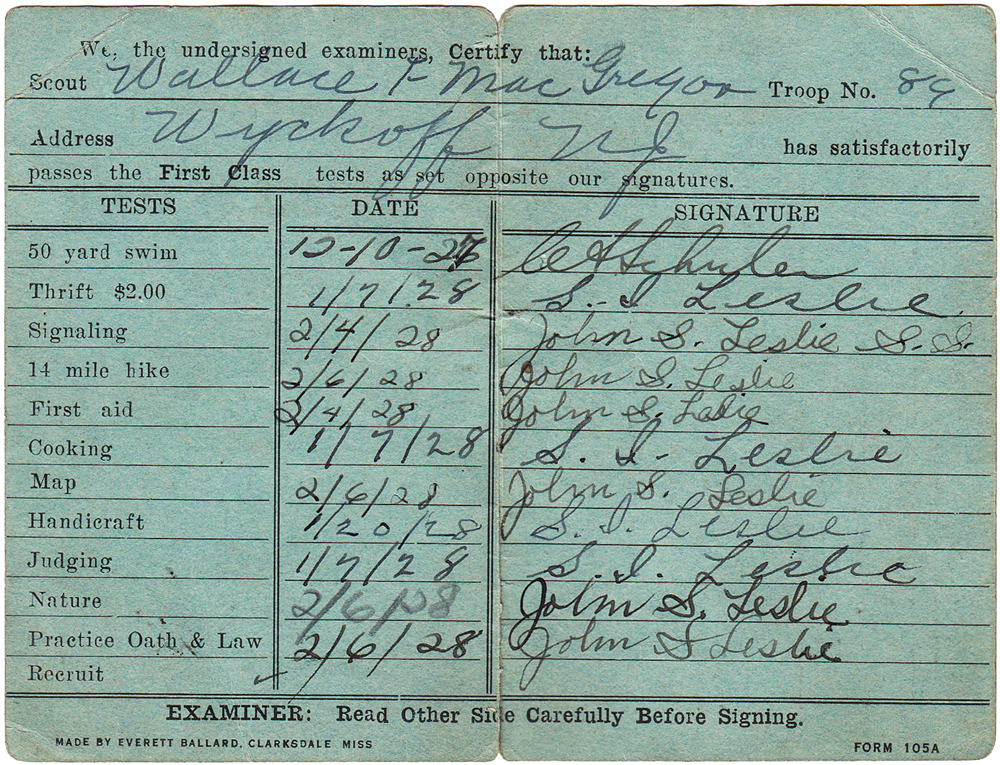 We, the undersigned examiners, Certify that:
Scout Wallace F MacGregor Troop No. 89
Address Wyckoff NJ has satisfactorily
passes the First Class tests as set opposite our signatures.
TESTS DATE SIGNATURE
50 yard swim 12-10-27
Thrift $2.00 1/7/28 S. I. Leslie
Signaling 2/4/28 John S. Leslie S. S.
14 mile hike 2/6/28 John S. Leslie
First aid 2/4/28 John S. Leslie
Cooking 1/7/28 S. I. Leslie
Map 2/6/28 John S. Leslie
Handicraft 1/20/28 S. I. Leslie
Judging 1/7/28 S. I. Leslie
Nature 2/6/28 John S. Leslie
Practice Oath & Law 2/6/28 John S Leslie
Recruit ✓
EXAMINER: Read Other Side Carefully Before Signing.
MADE BY EVERETT BALLARD, CLARKSDALE MISS FORM 105A